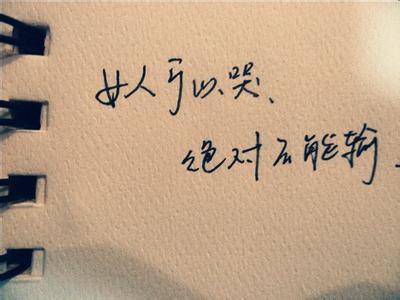 女人可以哭、
绝对不能输.